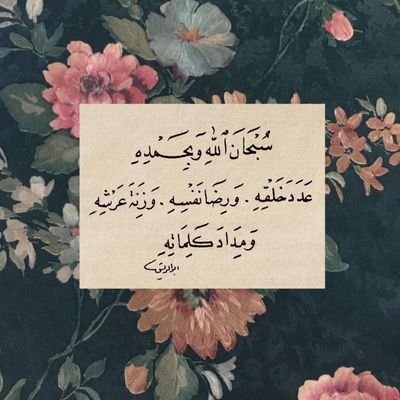 سُبْحَانَ ٱللَّهِ وَبِحَمْدِهِ
عَدَدَ خَلْقِهِ . وَرِضَا نَفْسِهِ . وَزِنَةَ عَرْشِهِ
وَمِدَادَ كَلِمَاتِهِ